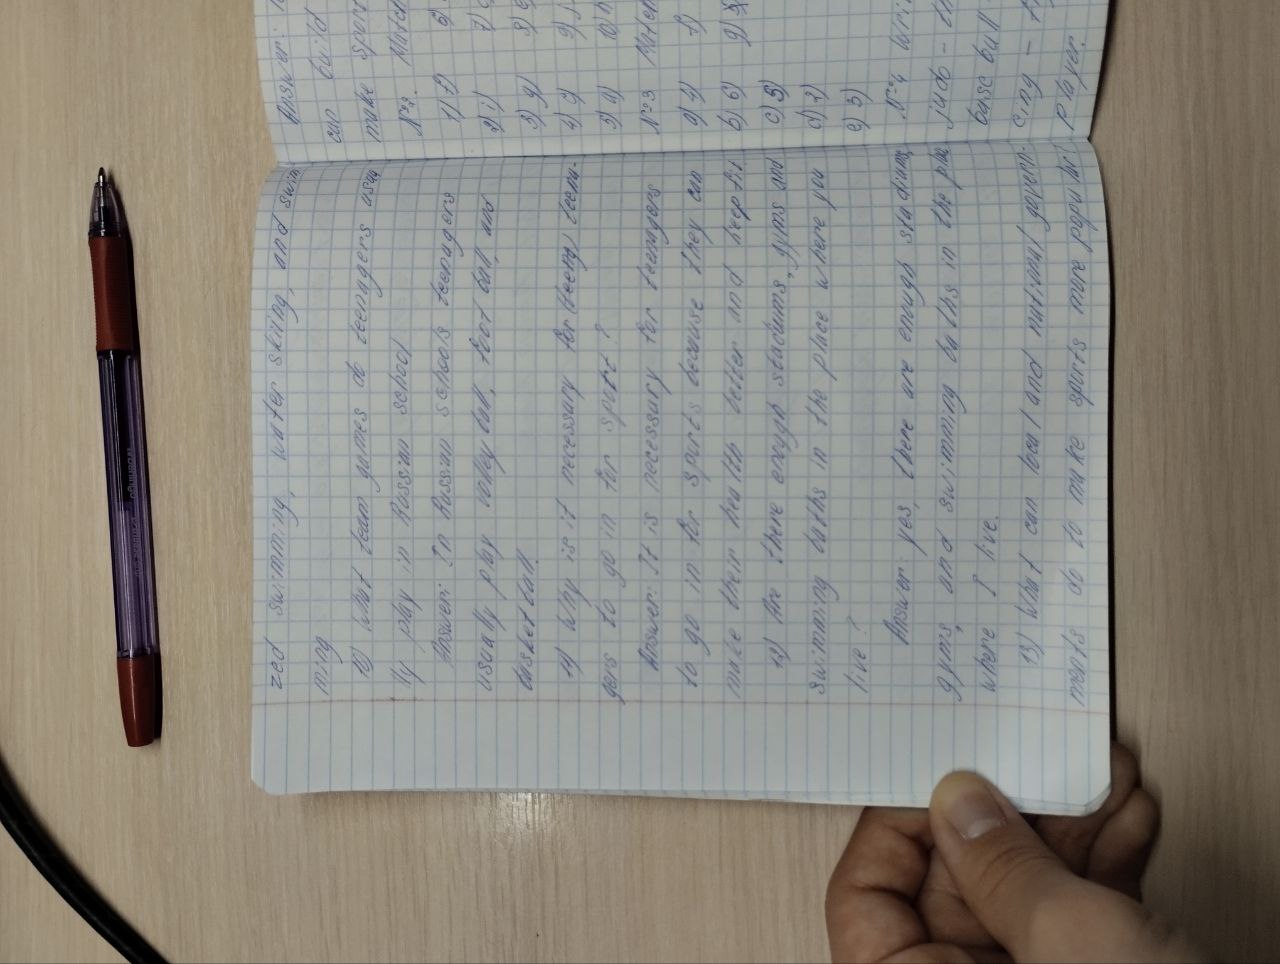 zed swimming, water skiing, and swim
ming
10) What team games do teenagers usua
lly play in Russian school
Answer: In Russian schools teenagers
usually play volley ball, foot ball, and
basket ball.
11) Why is it necessary for (teeng) teena-
gers to go in for sport?
Answer: It is necessary for teenagers
to go in for sports because they can
make their health better and keep fit.
12) Are there enough stadiums, gyms and
swimming baths in the place where you
live?
Answer: yes, there are enough stadiums,
gyms, and swimming baths in the place
where I live.
13) What can local and national govern-
ments do to make sports more popular?
Answer:
can build
make spor
N°2. Match
1) f)
2) i)
3) g)
4) c)
5) a)
N°3 Match
a) 4)
b) 6)
c) 5)
d) 2)
e) 3)
N°4 Wri
judo - th
base ball
cing - f
player.